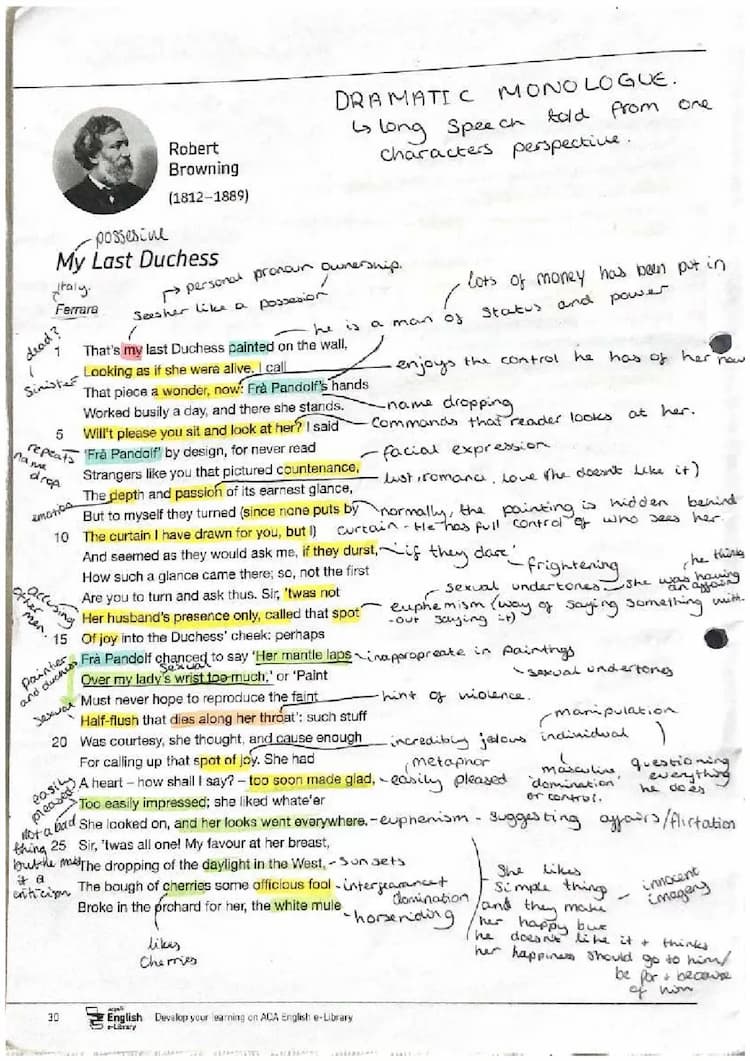 DRAMATIC MONOLOGUE.
↳ long speech told from one
characters perspective.
Robert
Browning
(1812–1889)
possesive
My Last Duchess
Italy.
Ferrara
→ personal pronoun ownership.
Sees her like a possesion
lots of money has been put in
he is a man of status and power
dead?
Sinister
1 That's my last Duchess painted on the wall,
Looking as if she were alive. I call
enjoys the control he has of her now
That piece a wonder, now: Frà Pandolf's hands
Worked busily a day, and there she stands.
name dropping
5 Will't please you sit and look at her? I said
Commands that reader looks at her.
repeats name drop
'Frà Pandolf' by design, for never read
facial expression
Strangers like you that pictured countenance,
lust, romance, love (he doesn't like it)
emotion
The depth and passion of its earnest glance,
But to myself they turned (since none puts by
normally, the painting is hidden behind
10 The curtain I have drawn for you, but I)
curtain - He has full control of who sees her.
And seemed as they would ask me, if they durst,
'if they dare' - frightening
How such a glance came there; so, not the first
he thinks
she was having an affair
sexual undertones
Are you to turn and ask thus. Sir, 'twas not
accusing other men.
Her husband's presence only, called that spot
euphemism (way of saying something with-
-out saying it)
15 Of joy into the Duchess' cheek: perhaps
painter and duchess
Frà Pandolf chanced to say 'Her mantle laps
inapropreate in paintings
sexual
Over my lady's wrist too much,' or 'Paint
sexual undertones
Must never hope to reproduce the faint
hint of violence.
sexual
Half-flush that dies along her throat': such stuff
manipulation
20 Was courtesy, she thought, and cause enough
incredibly jelous individual
For calling up that spot of joy. She had
metaphor
masculine 'domination' or control.
questioning everything he does
easily pleased
A heart – how shall I say? – too soon made glad,
easily pleased
Too easily impressed; she liked whate'er
Not a bad thing but he makes it a criticism
She looked on, and her looks went everywhere.
- euphemism - suggesting affairs/flirtation
25 Sir, 'twas all one! My favour at her breast,
The dropping of the daylight in the West,
- Sunsets
The bough of cherries some officious fool
- domination
Broke in the orchard for her, the white mule
- horseriding
She likes
simple things
and they make
her happy but
he doesn't like it + thinks
her happiness should go to him/
be for + because
of him
- innocent imagery
likes
Cherries
30
English
e-Library
Develop your learning on ACA English e-Library